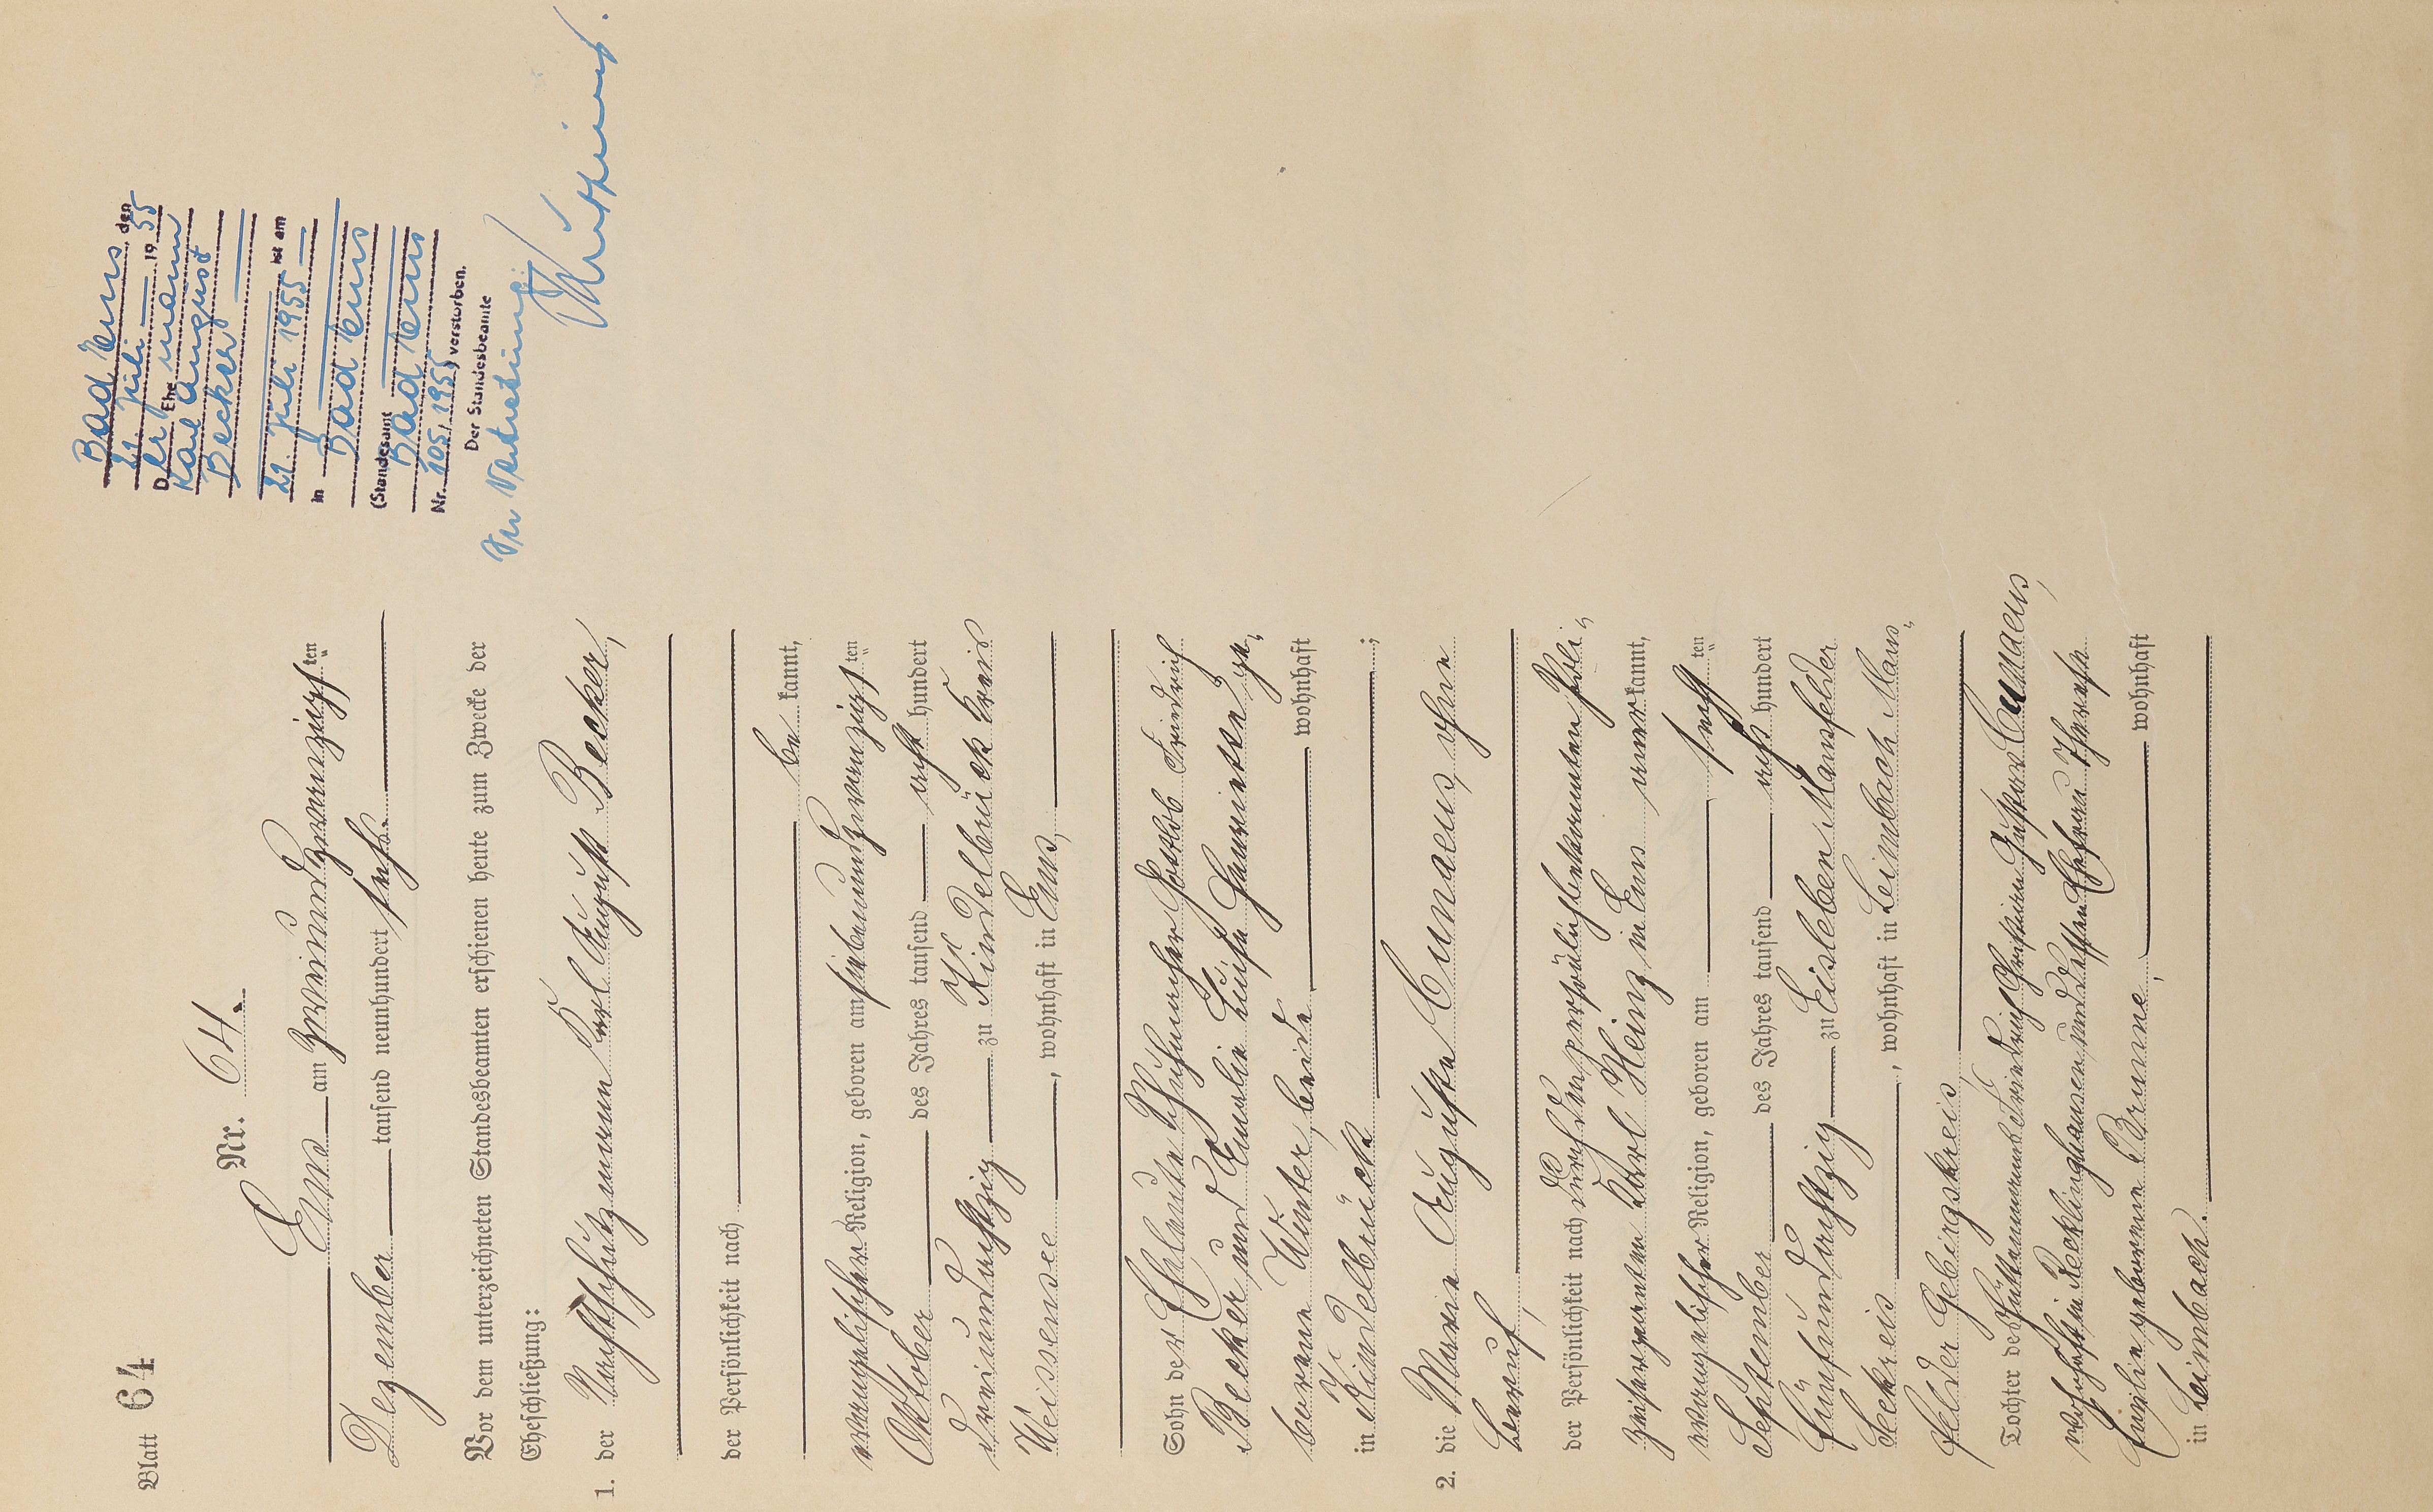 Blatt 64
Nr. 64.
Ems am zweiundzwanzigsten
Dezember tausend neunhundert sechs.
Vor dem unterzeichneten Standesbeamten erschienen heute zum Zwecke der
Eheschließung:
1. der Karl August Becker,
der Persönlichkeit nach
be kannt,
evangelischer Religion, geboren am siebenundzwanzigsten
Oktober des Jahres tausend acht hundert
dreiundachtzig zu Kindelbrück Kreis
Weissensee, wohnhaft in Ems,
Sohn der Eheleute Schuhmacher Gottlob Friedrich
Becker und Emilie Luise Henriette ge„
borene Winter, beide wohnhaft
in Kindelbrück;
2. die Marie Auguste Cunaeus, ohne
Beruf,
der Persönlichkeit nach durch den persönlich bekannten Poli„
zeisergeanten Karl Heinz in Ems anerkannt,
evangelischer Religion, geboren am sechsten
September des Jahres tausend acht hundert
fünfundachtzig zu Eisleben Mansfelder
Seekreis, wohnhaft in Leimbach Mans„
felder Gebirgskreis,
Tochter des Hüttenmanns Friedrich Christian Gustav Cunaeus,
wohnhaft in Recklinghausen und dessen Ehefrau Therese
Emilie geborenen Brunne, wohnhaft
in Leimbach.
Bad Ems, den
21. Juli 1955
Der Ehemann
Karl August
Becker
ist am
21. Juli 1955
in Bad Ems
(Standesamt
Bad Ems
Nr. 105/1955) verstorben.
Der Standesbeamte
In Vertretung: